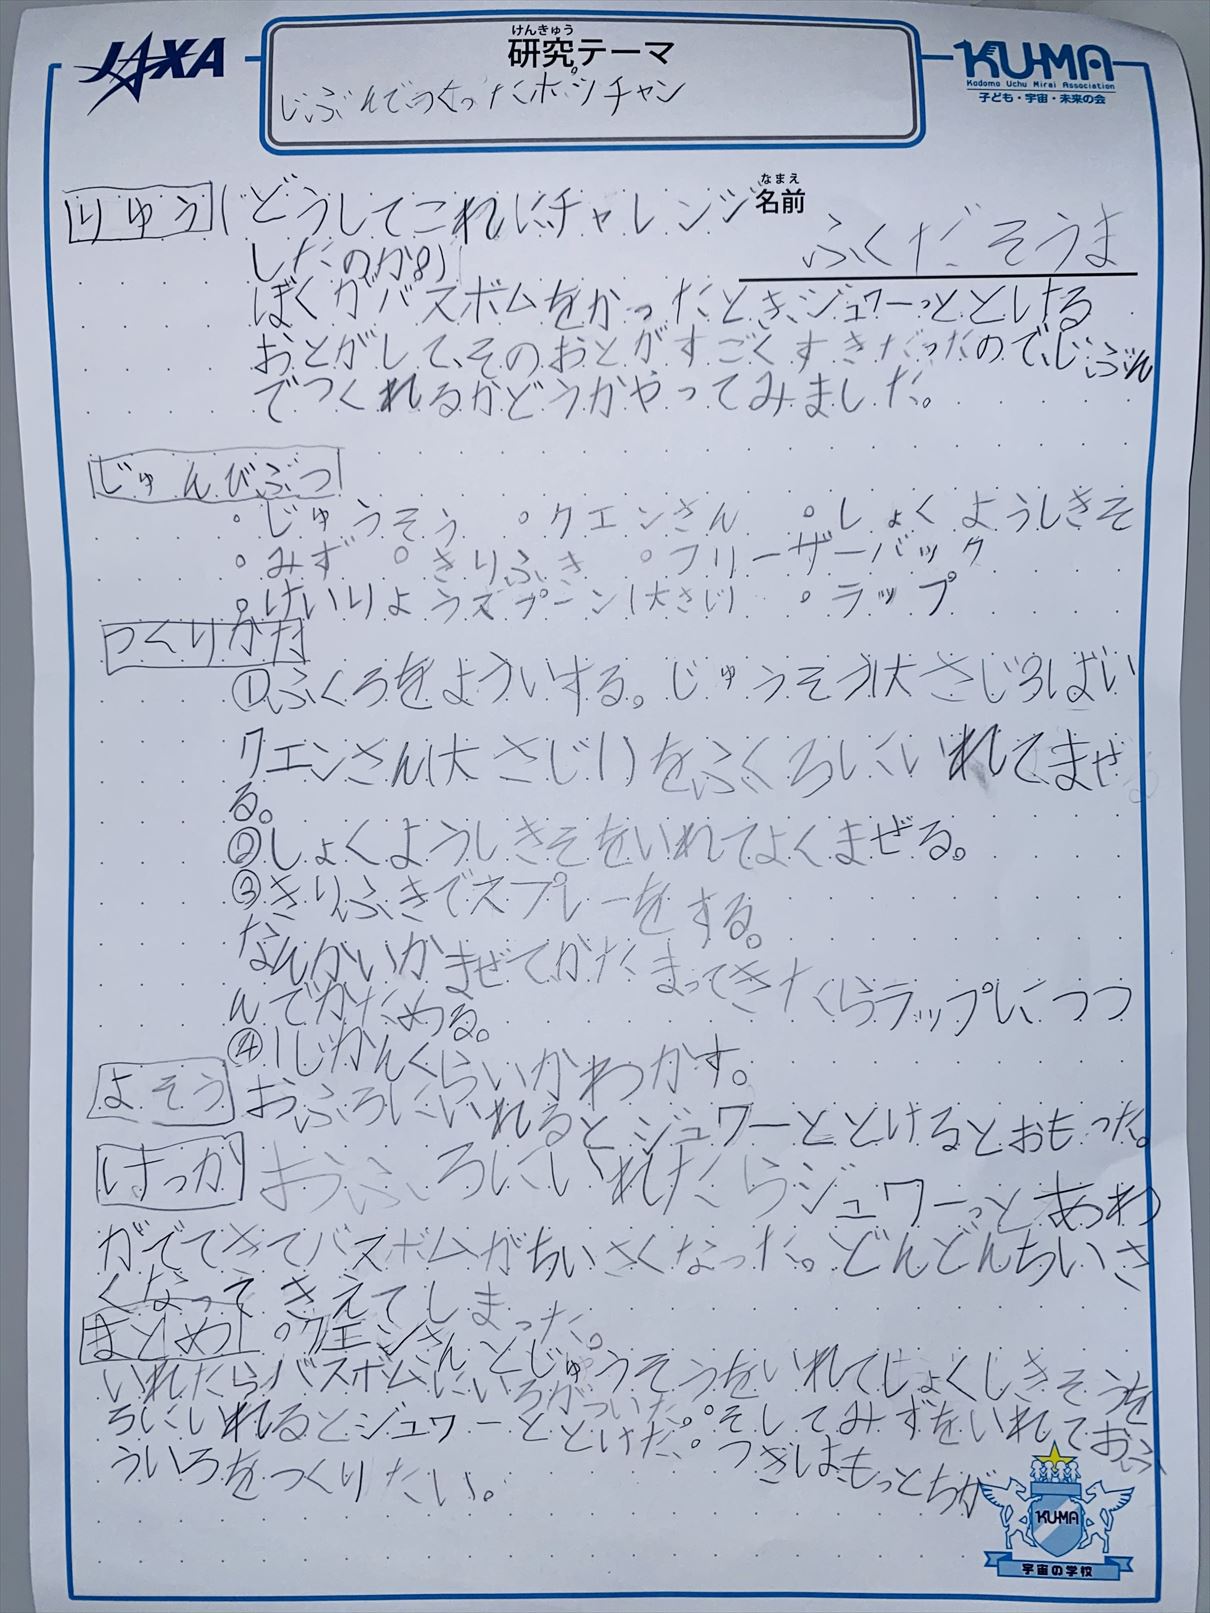 JAXA
けんきゅう
研究テーマ
KU-MA
Kodomo Uchu Mirai Association
子ども・宇宙・未来の会
じぶんでつくったポッチャン
なまえ
名前
ふくだそうま
りゆう(どうしてこれにチャレンジ
したのか?)
ぼくがバスボムをかったとき、ジュワーっととける
おとがして、そのおとがすごくすきだったので、じぶん
でつくれるかどうかやってみました。
じゅんびぶつ
・じゅうそう ・クエンさん ・しょくようしきそ
・みず ・きりふき ・フリーザーバック
・けいりようスプーン(大さじ) ・ラップ
つくりかた
①ふくろをよういする。じゅうそう(大さじ3ばい
クエンさん(大さじ1)をふくろにいれてまぜ
る。
②しょくようしきそをいれてよくまぜる。
③きりふきでスプレーをする。
なんかいかまぜてかたまってきたらラップにつつ
んでかためる。
④1じかんくらいかわかす。
よそう おふろにいれるとジュワーととけるとおもった。
けっか おふろにいれたらジュワーっとあわ
がでてきてバスボムがちいさくなった。どんどんちいさ
くなってきえてしまった。
まとめ ・クエンさんとじゅうそうをいれてしょくしきそうを
いれたらバスボムにいろがついた。そしてみずをいれておふ
ろにいれるとジュワーととけた。つぎはもっとちが
ういろをつくりたい。
KU-MA
宇宙の学校